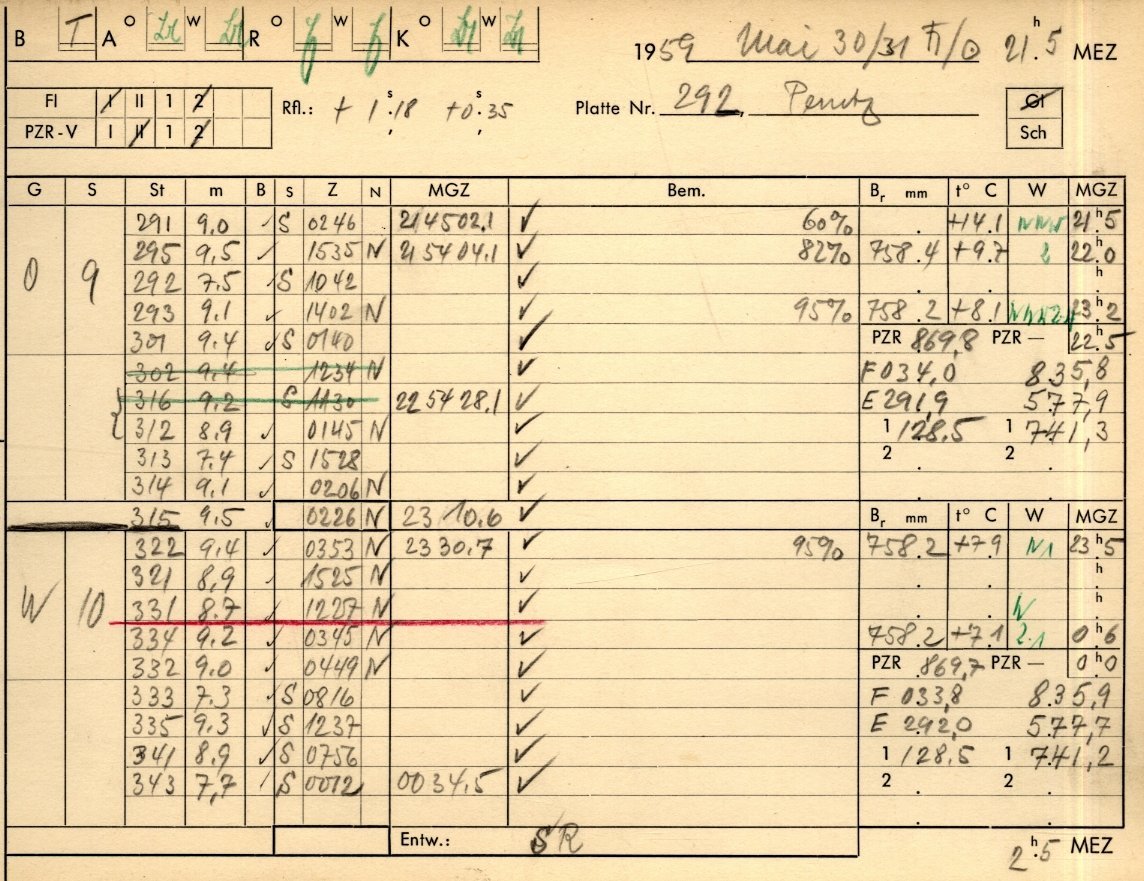 B T A O W R O W K O W 1959 Mai 30/31 21h.5 MEZ
FI I II 1 2 Rfl.: + 1s.18 +0s.35 Platte Nr. 292, GI
PZR-V I II 1 2 Sch
G S St m B S Z N MGZ Bem. Br mm t° C W MGZ
291 9.0 ✓ S 0246 214502.1 ✓ 60% . +14.1 21h.5
295 9,5 ✓ 1535 N 215404.1 ✓ 82% 758.4 +9.7 2 22h.0
O 9 292 7.5 ✓ S 1042 ✓ . . h.
293 9.1 ✓ 1402 N ✓ 95% 758.2 +8.1 23h.2
301 9.4 ✓ S 0140 ✓ PZR 869,8 PZR — 22h.5
302 9.4 1234 N ✓ F 034,0 835,8
316 9.2 S 1130 225428.1 ✓ E 291,9 577,9
312 8.9 ✓ 0145 N ✓ 1 128.5 1 741,3
313 7.4 ✓ S 1528 ✓ 2 . 2 .
314 9.1 ✓ 0206 N ✓ . .
315 9.5 ✓ 0226 N 2310.6 ✓ Br mm t° C W MGZ
322 9.4 ✓ 0353 N 2330.7 ✓ 95% 758.2 +7.9 N1 23h.5
321 8,9 ✓ 1525 N ✓ . . h.
W 10 331 8.7 ✓ 1227 N ✓ . . h.
334 9.2 ✓ 0345 N ✓ 758.2 +7.1 2.1 0h.6
332 9.0 ✓ 0449 N ✓ PZR 869,7 PZR — 0h.0
333 7.3 ✓ S 0816 ✓ F 033,8 835,9
335 9.3 ✓ S 1237 ✓ E 292,0 577,7
341 8,9 ✓ S 0756 ✓ 1 128,5 1 741,2
343 7,7 ✓ S 0012 0034.5 ✓ 2 . 2 .
Entw.: SR 2h.5 MEZ